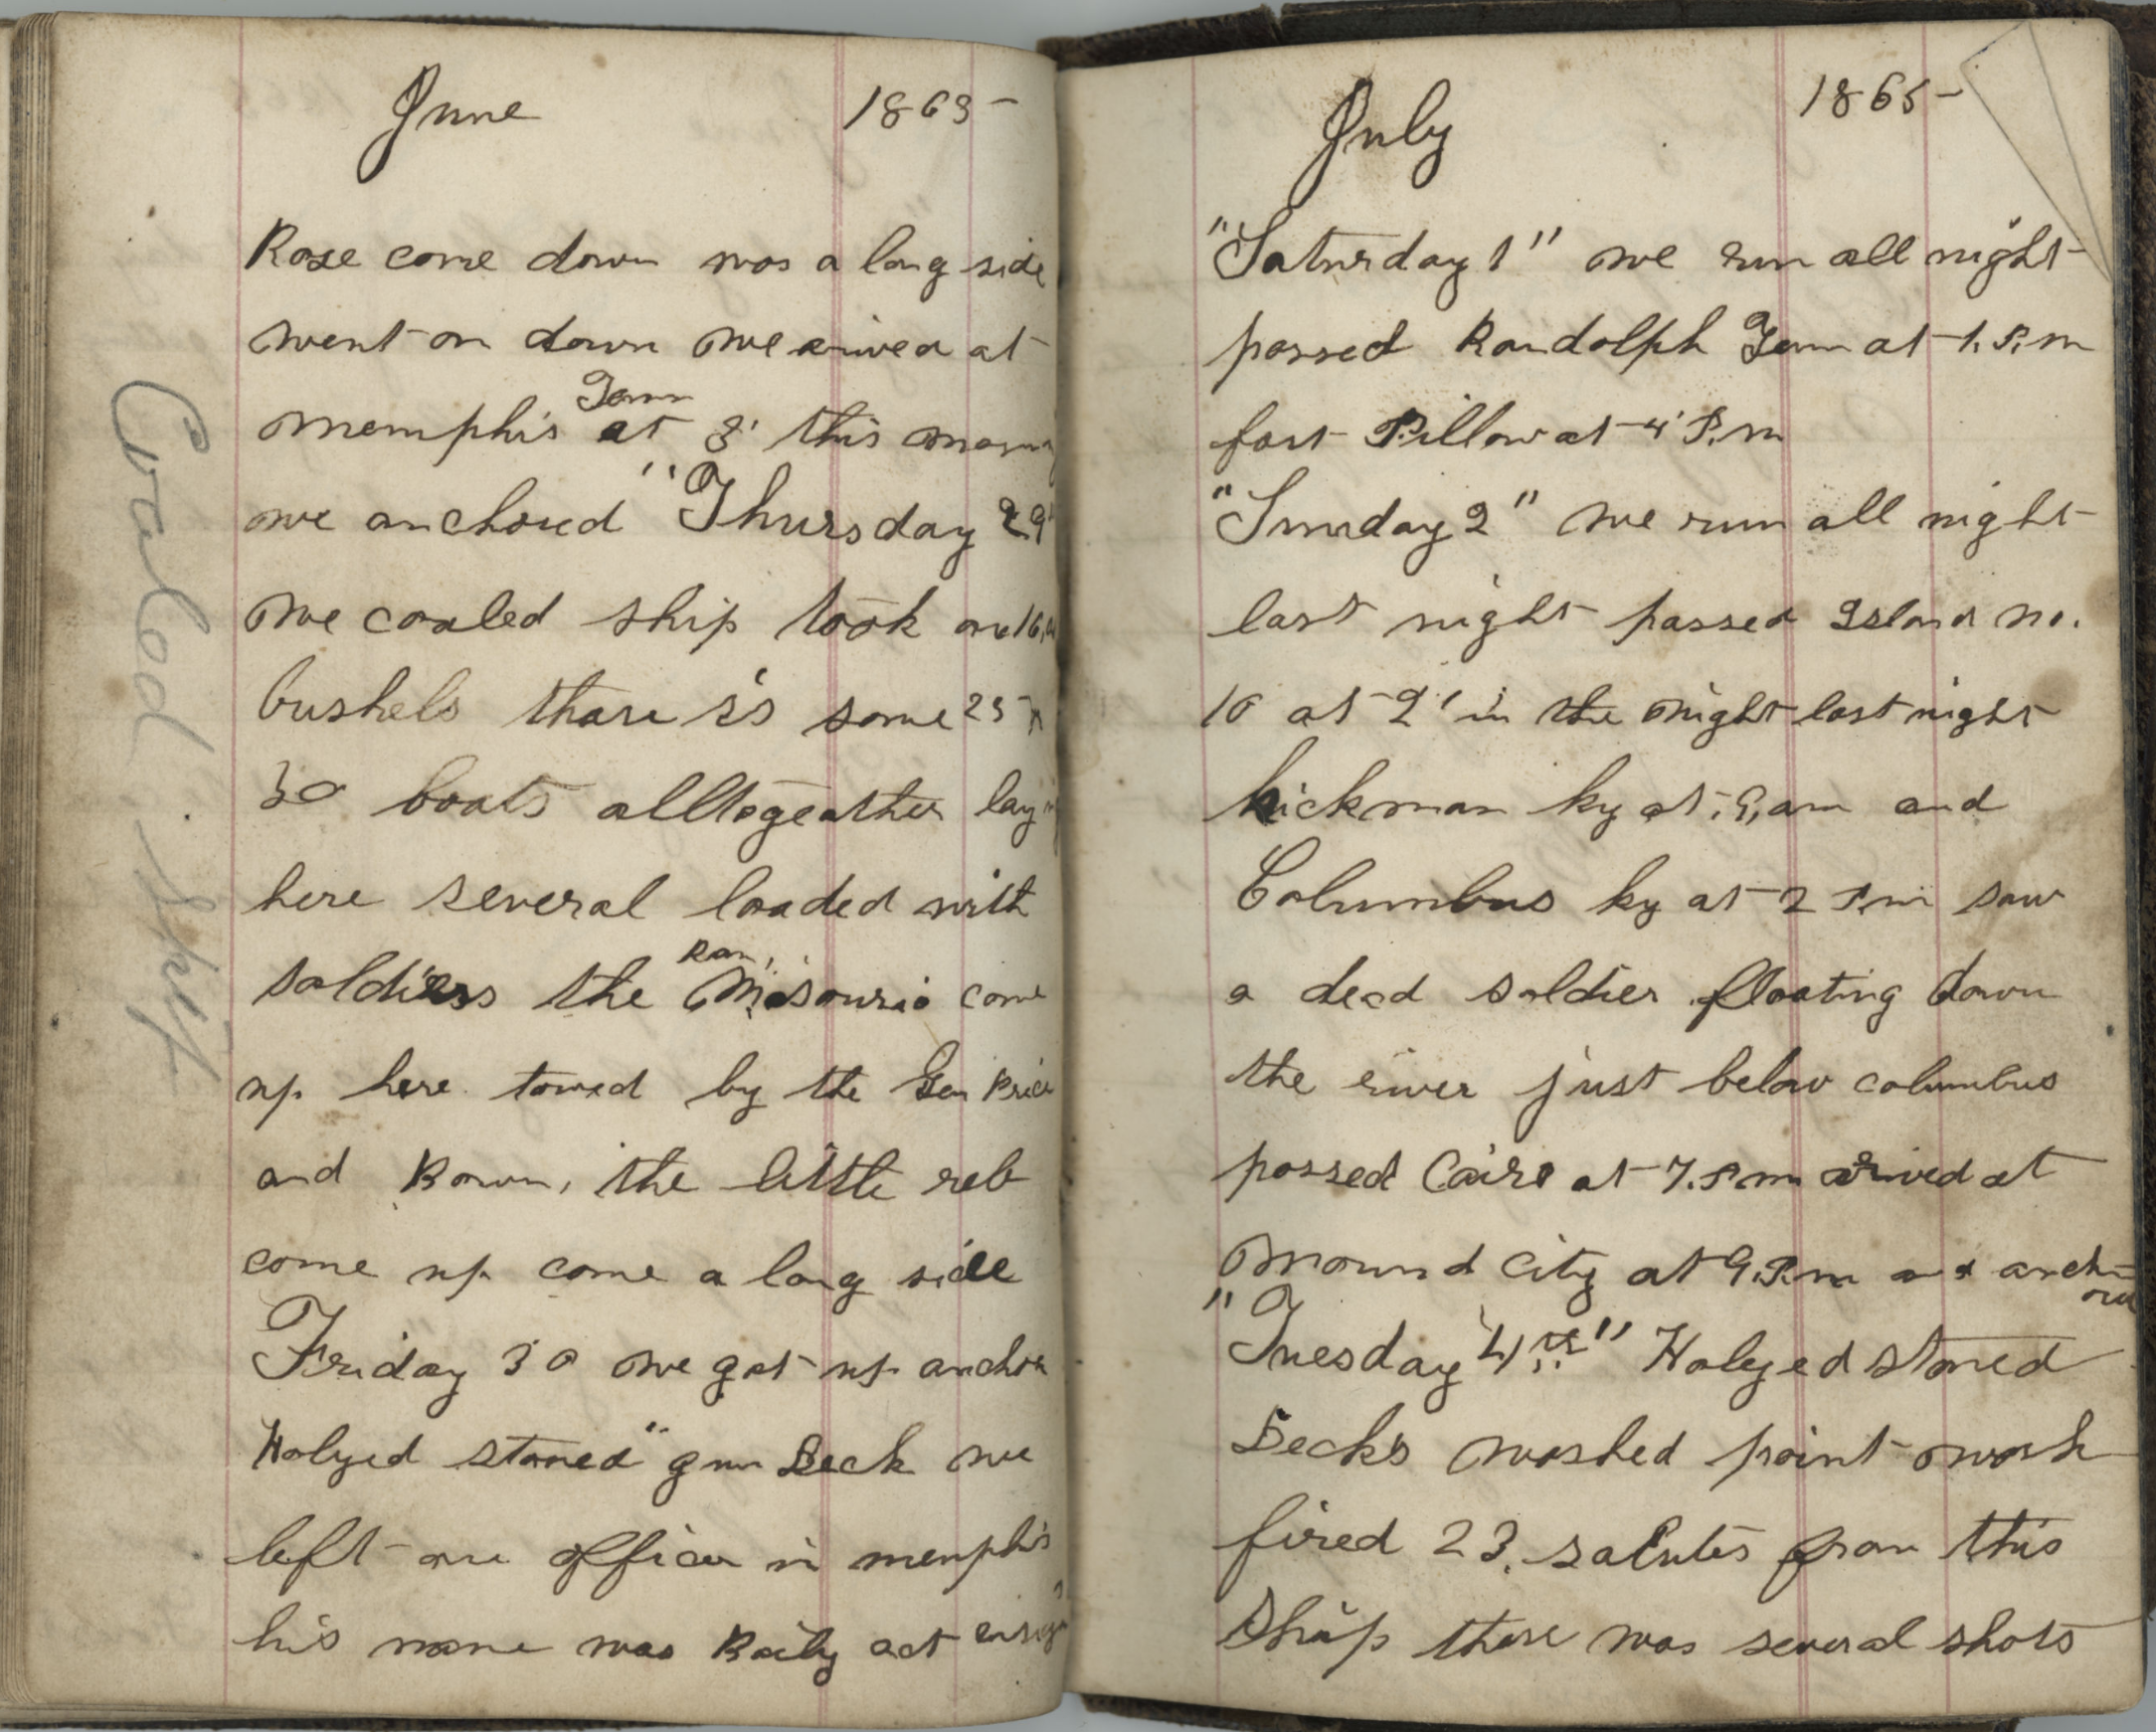 June 1865-
Rose come down was a long side
went on down we arived at
Tenn
memphis at 8' this morn
we anchored "Thursday 29"
we coaled ship took on 16,
bushels thare is some 25
30 boats alltogeather lay
here several loaded with
Ram,
soldiers the Missouria come
up here towed by the Gen Price
and Ram, the little reb
come up come a long side
Friday 30 we got up anchor
Holyed stoned" gun Deck we
left one officer in memphis
his name was Baily act ensign
Coaled Ship
July 1865-
"Saturday 1" we run all night
passed Randolph Tenn at 1. P.m
fort Pillow at 4' P.m
"Sunday 2" we run all night
last night passed Island no.
10 at 2' in the night last night
hickman ky at, 9, am and
Columbus ky at 2 P.m saw
a dead soldier floating down
the river just below columbus
passed Cairo at 7. P m arived at
mound City at 9. P.m and anch
ored
"Tuesday 4th" Holyed stoned
Decks washed paint work
fired 23. salutes from this
Ship thare was several shots